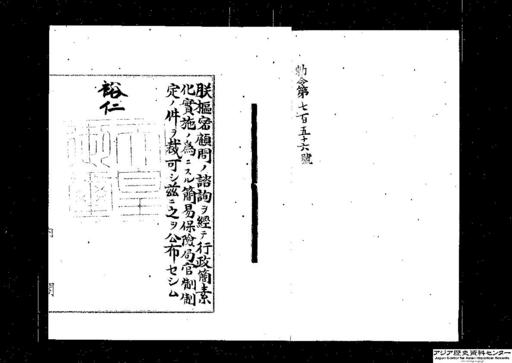 勅令第七百五十六號
朕樞密顧問ノ諮詢ヲ經テ行政簡素
化實施ノ爲ニスル簡易保險局官制制
定ノ件ヲ裁可シ茲ニ之ヲ公布セシム
裕仁
アジア歴史資料センター
Japan Center for Asian Historical Records